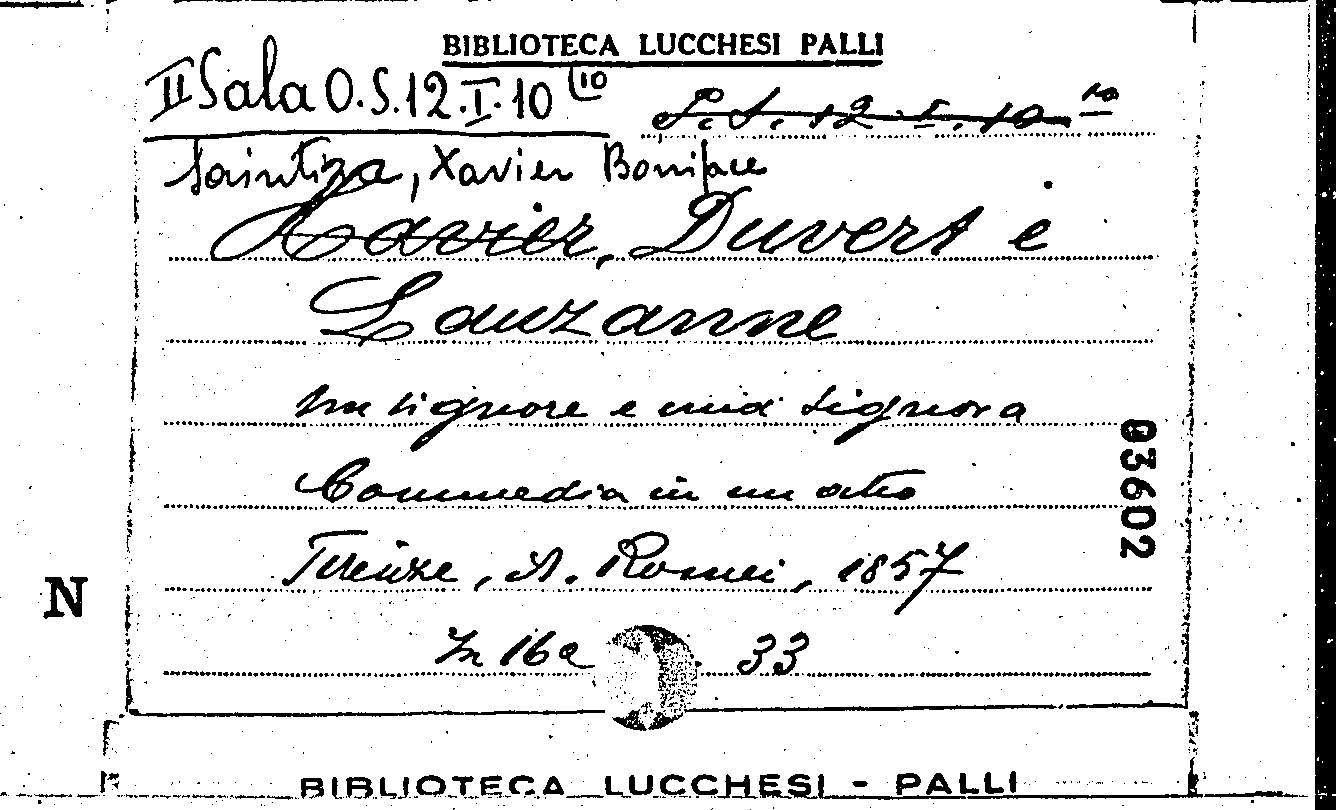 BIBLIOTECA LUCCHESI PALLI
II Sala O.S.12.I.10 (10
P.S. 12.I.10 10
Saintine, Xavier Boniface
Xavier, Duvert e
Lauzanne
Un signore e una signora
Commedia in un atto
Firenze, A. Romei, 1857
In 16a 33
03602
N
BIBLIOTECA LUCCHESI - PALLI